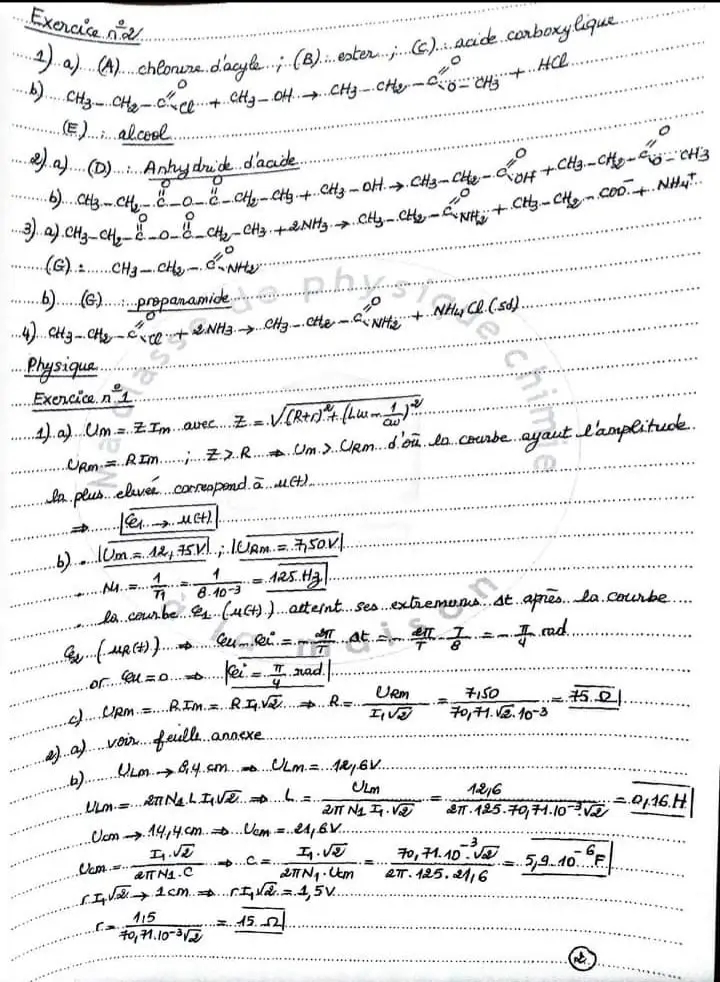 Exercice n°2
1) a) (A) chlorure d'acyle ; (B) : ester ; (C) : acide carboxylique
b) CH3 – CH2 – C(=O)–Cl + CH3 – OH → CH3 – CH2 – C(=O)–O – CH3 + HCl
(E) : alcool
2) a) (D) : Anhydride d'acide
b) CH3 – CH2 – C(=O) – O – C(=O) – CH2 – CH3 + CH3 – OH → CH3 – CH2 – C(=O)–OH + CH3 – CH2 – C(=O)–O – CH3
3) a) CH3 – CH2 – C(=O) – O – C(=O) – CH2 – CH3 + 2NH3 → CH3 – CH2 – C(=O)–NH2 + CH3 – CH2 – COO⁻ + NH4⁺
(G) : CH3 – CH2 – C(=O)–NH2
b) (G) : propanamide
4) CH3 – CH2 – C(=O)–Cl + 2NH3 → CH3 – CH2 – C(=O)–NH2 + NH4Cl (sd)
Physique
Exercice n°1
1) a) Um = Z Im avec Z = √((R+r)² + (Lω – 1/Cω)²)
URm = R Im ; Z > R ⇒ Um > URm d'où la courbe ayant l'amplitude
la plus elevée correspond à u(t)
⇒ |C1 → u(t)|
b) . |Um = 12,75V| ; |URm = 7,50V|
. N1 = 1/T1 = 1/8.10⁻³ = 125 Hz|
. la courbe C1 (u(t)) atteint ses extremums Δt après la courbe
C2 (uR(t)) ⇒ φu – φi = – 2π/T Δt = – 2π/T T/8 = – π/4 rad
or φu = 0 ⇒ |φi = π/4 rad|
c) URm = R Im = R I1√2 ⇒ R = URm/I1√2 = 7,50/70,71.√2.10⁻³ = 75 Ω|
2) a) voir feuille annexe
b) ULm → 8,4 cm ⇒ ULm = 12,6V
ULm = 2πN1.L I1√2 ⇒ L = ULm/2πN1 I1√2 = 12,6/2π.125.70,71.10⁻³√2 = 0,16 H|
Ucm → 14,4 cm ⇒ Ucm = 21,6V
Ucm = I1.√2/2πN1.C ⇒ C = I1.√2/2πN1.Ucm = 70,71.10⁻³√2/2π.125.21,6 = 5,9.10⁻⁶ F|
r I1√2 → 1 cm ⇒ r I1√2 = 1,5V
r = 1,5/70,71.10⁻³√2 = 15 Ω|
Ma classe de physique chimie à la maison